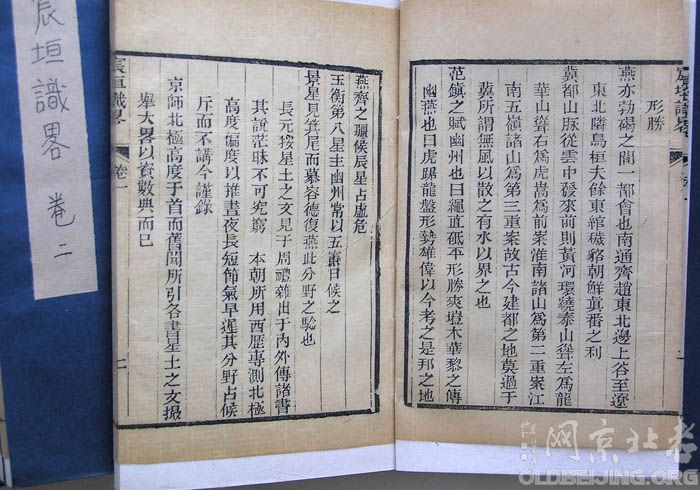 形勝
燕亦勃碣之間一都會也南通齊趙東北邊上谷至遼
東北隣烏桓夫餘東綰穢貉朝鮮眞番之利
冀都山脉從雲中發來前則黃河環繞泰山聳左爲龍
華山聳右爲虎嵩爲前案淮南諸山爲第二重案江
南五嶺諸山爲第三重案故古今建都之地莫過于
冀所謂無風以散之有水以界之也
范鎭之賦幽州也曰繩直砥平形勝爽塏木華黎之傳
幽燕也曰虎踞龍盤形勢雄偉以今考之是邦之地
燕齊之疆候辰星占虛危
玉衡第八星主幽州常以五寅日候之
景星見箕尾而慕容德復燕此分野之騐也
長元按星土之文見于周禮雜出于內外傳諸書
其說茫昧不可究窮 本朝所用西歷專測北極
高度偏度以推晝夜長短節氣早遲其分野占候
斥而不講今謹錄
京師北極高度于首而舊聞所引各書星土之文撮
舉大畧以資數典而已
宸垣識畧 卷一
宸垣識畧 卷二
网京北老
OLDBEIJING.ORG